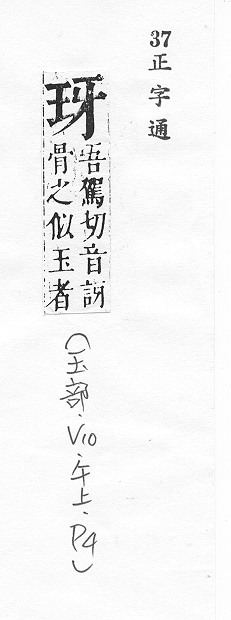 37正字通
玡
吾駕切音訝
骨之似玉者
(玉部.V10.午上.P4)